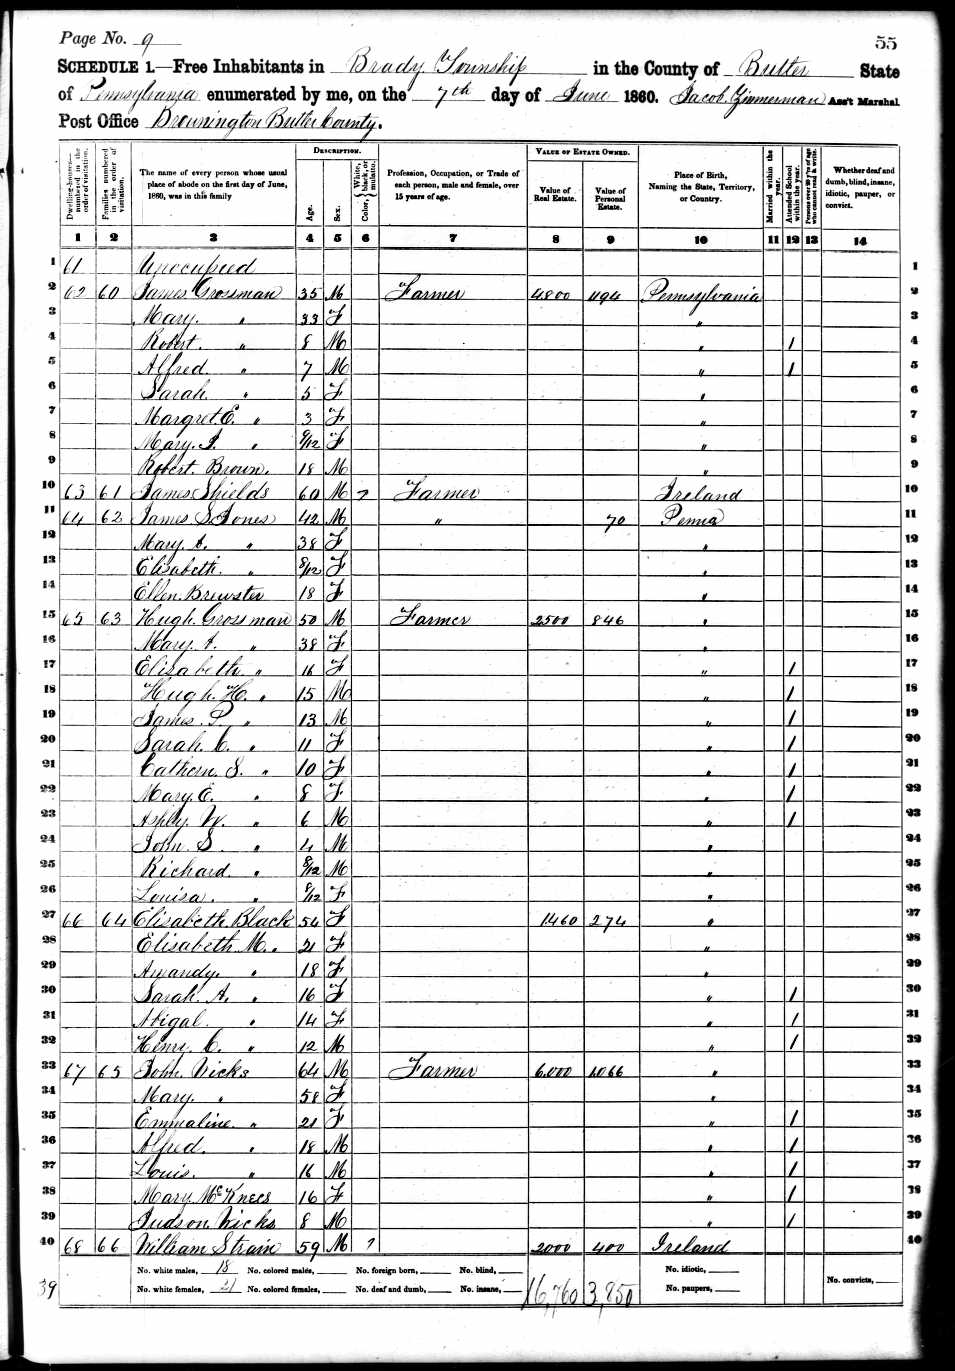 Page No. 9
55
SCHEDULE 1.—Free Inhabitants in Brady Township in the County of Butler State
of Pennsylvania enumerated by me, on the 7th day of June 1860. Jacob Zimmerman Ass't Marshal
Post Office Brownington Butler County.
Dwelling-houses—numbered in the order of visitation.
Families numbered in the order of visitation.
The name of every person whose usual place of abode on the first day of June, 1860, was in this family
DESCRIPTION.
Age.
Sex.
Color, White, black, or mulatto.
Profession, Occupation, or Trade of each person, male and female, over 15 years of age.
VALUE OF ESTATE OWNED.
Value of Real Estate.
Value of Personal Estate.
Place of Birth, Naming the State, Territory, or Country.
Married within the year.
Attended School within the year.
Persons over 20 y'rs of age who cannot read & write.
Whether deaf and dumb, blind, insane, idiotic, pauper, or convict.
1 2 3 4 5 6 7 8 9 10 11 12 13 14
1 61 Unoccupied 1
2 62 60 James Grossman 35 M Farmer 4800 494 Pennsylvania 2
3 Mary " 33 F " 3
4 Robert " 8 M " 1 4
5 Alfred " 7 M " 1 5
6 Sarah " 5 F " 6
7 Margret E. " 3 F " 7
8 Mary J. " 9/12 F " 8
9 Robert Brown. 18 M " 9
10 63 61 James Shields 60 M 7 Farmer Ireland 10
11 64 62 James S Jones 42 M " 70 Penna 11
12 Mary A. " 38 F " 12
13 Elisabeth " 8/12 F " 13
14 Ellen Brewster 18 F " 14
15 65 63 Hugh Grossman 50 M Farmer 2500 846 " 15
16 Mary A. " 38 F " 16
17 Elizabeth " 16 F " 1 17
18 Hugh H. " 15 M " 1 18
19 James P. " 13 M " 1 19
20 Sarah C. " 11 F " 1 20
21 Cathern S. " 10 F " 1 21
22 Mary E. " 8 F " 1 22
23 Ashly W. " 6 M " 1 23
24 John S " 4 M " 24
25 Richard " 8/12 M " 25
26 Louisa. " 8/12 F " 26
27 66 64 Elisabeth Black 54 F 1460 274 " 27
28 Elisabeth M. " 21 F " 28
29 Amandy. " 18 F " 29
30 Sarah A. " 16 F " 1 30
31 Abigal " 14 F " 1 31
32 Henry C. " 12 M " 1 32
33 67 65 John Wicks 64 M Farmer 6.000 1.066 " 33
34 Mary. " 58 F " 34
35 Emmaline " 21 F " 1 35
36 Alfred. " 18 M " 1 36
37 Louis. " 16 M " 1 37
38 Mary McKnees 16 F " 1 38
39 Judson Wicks 8 M " 1 39
40 68 66 William Strain 59 M 7 2000 400 Ireland 40
39
No. white males, 18 No. colored males, No. foreign born, No. blind, No. idiotic,
No. white females, 21 No. colored females, No. deaf and dumb, No. insane, 16,760 3,850 No. paupers, No. convicts,